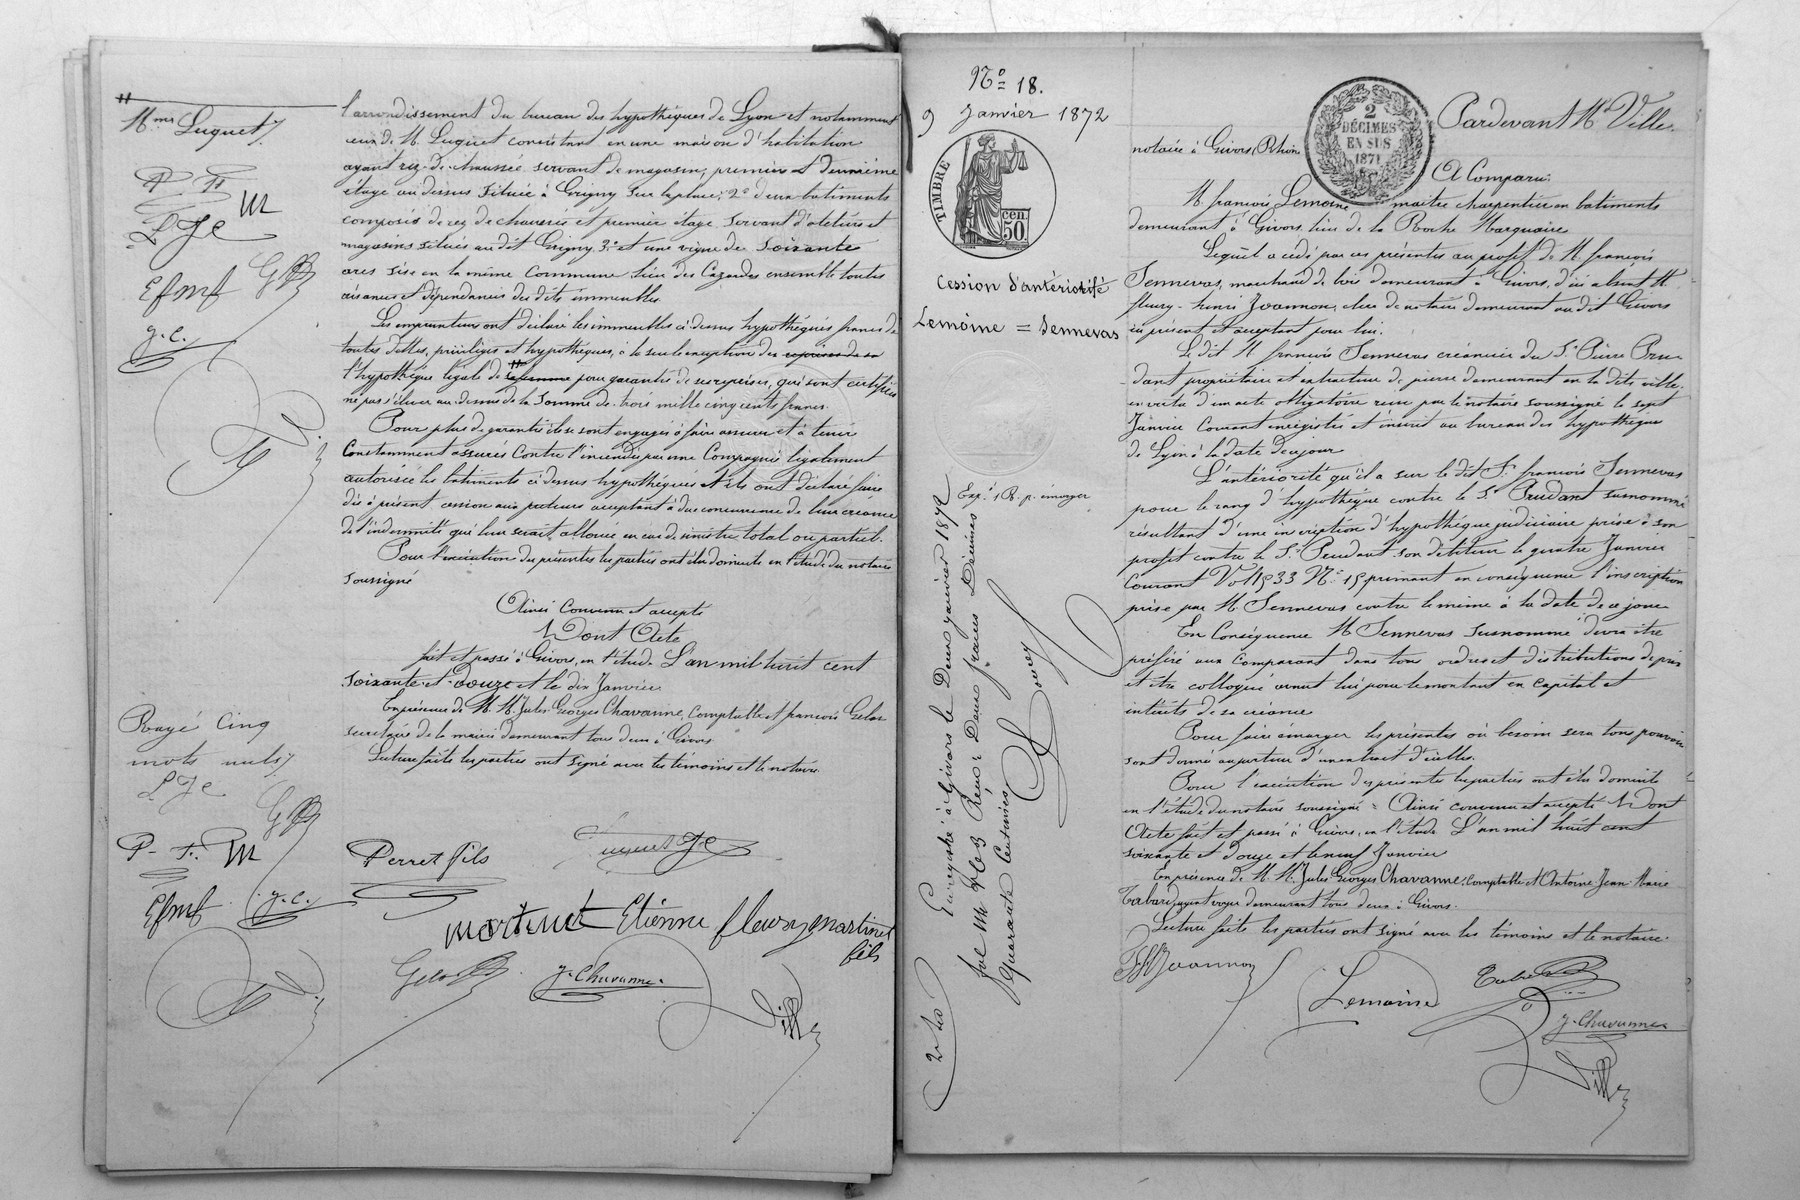 Mme Luquet
P. F.
M
L Je
Efmf
J. C.
l'arrondissement du bureau des hypothéques de Lyon et notamment
ceux de M. Luquet consistant en une maison d'habitation
ayant rez-de-chaussée servant de magasin, premier et deuxième
étage au dessus située à Grigny sur la place, 2° deux batiments
composés de rez de chaussée et premier étage servant d'ateliers et
magasins situés au dit Grigny 3° et une vigne de soixante
ares sise en la même commune lieu des Cazardes ensemble toutes
aisances et dépendances des dits immeubles.
Les emprunteurs ont déclaré les immeubles ci dessus hypothéqués francs de
toutes dettes, priviléges et hypothéques, à la seule exception des reprises de sa
l'hypothéque légale de femme pour garantie de ses reprises, qui sont certifiées
ne pas s'élever au dessus de la somme de trois mille cinq cents francs.
Pour plus de garantie ils se sont engagés à faire assurer et à tenir
Constamment assurés Contre l'incendie par une Compagnie légalement
autorisée les batiments ci dessus hypothéqués et ils ont déclaré faire
dès à présent cession aux preteurs acceptant à due concurrence de leur créance
de l'indemnité qui leur serait allouée en cas de sinistre total ou partiel.
Pour l'exécution des présentes les parties ont élu domicile en l'étude du notaire
soussigné
Ainsi Convenu et accepté
Dont Acte
fait et passé à Givors, en l'étude L'an mil huit cent
soixante-et-douze et le dix Janvier
En présence de M. M. Jules Georges Chavanne, Comptable et françois Gelas
secrétaire de la mairie demeurant tous deux à Givors
Lecture faite les parties ont signé avec les témoins et le notaire.
Rayé cinq
mots nuls
L Je
P. F. M
Efmf J. C.
Perret fils
Luquet Je
Martinet Etienne fleury martinet
fils
Gelas J. Chavanne
Ville
No 18.
9 Janvier 1872
TIMBRE
50 cen.
Cession d'antériorité
Lemoine = Sennevas
Exp. 1 R. p. émarger
Enregistré à Givors le Douze janvier 1872
fol Reçu: Deux francs Décimes
Quarante Centimes
2 DÉCIMES
EN SUS
1871
Pardevant Me Ville
notaire à Givors, Rhône
A Comparu:
M françois Lemoine maitre charpentier en batiments
demeurant à Givors, lieu de la Roche Marquaire
Lequel a cédé par ces présentes au profit de M françois
Sennevas, marchand de bois demeurant à Givors, d'ici absent M
fleury-henri Joannon, clerc de notaire demeurant au dit Givors
ici présent et acceptant pour lui.
Le dit M françois Sennevas créancier du Sr Pierre Pru-
dant propriétaire et extracteur de pierre demeurant en la dite ville.
en vertu d'un acte obligatoire reçu par le notaire soussigné le sept
Janvier Courant enregistré et inscrit au bureau des hypothéques
de Lyon à la date de ce jour
L'antériorité qu'il a sur le dit S. françois Sennevas
pour le rang d'hypothéque contre le Sr Prudant susnommé
résultant d'une inscription d'hypothéque judiciaire prise à son
profit contre le Sr Prudant son débiteur le quatre Janvier
Courant Vol 1533 No 15 primant en conséquence l'inscription
prise par M Sennevas contre le même à la date de ce jour
En Conséquence M Sennevas susnommé devra être
préféré aux Comparant dans tous ordres et distributions de prix
et être colloqué avant lui pour le montant en capital et
intérêts de sa créance
Pour faire émarger les présentes où besoin sera tous pouvoirs
sont donnés au porteur d'un extrait d'icelles.
Pour l'exécution des présentes les parties ont élu domicile
en l'étude du notaire soussigné = Ainsi convenu et accepté Dont
Acte fait et passé à Givors, en l'étude L'an mil huit cent
soixante et douze et le neuf Janvier
En présence de M. M. Jules Georges Chavanne, Comptable et Antoine Jean-Marie
Tabard, agent voyer demeurant tous deux à Givors.
Lecture faite les parties ont signé avec les témoins et le notaire.
FH Joannon
Lemoine
J. Chavanne
Ville